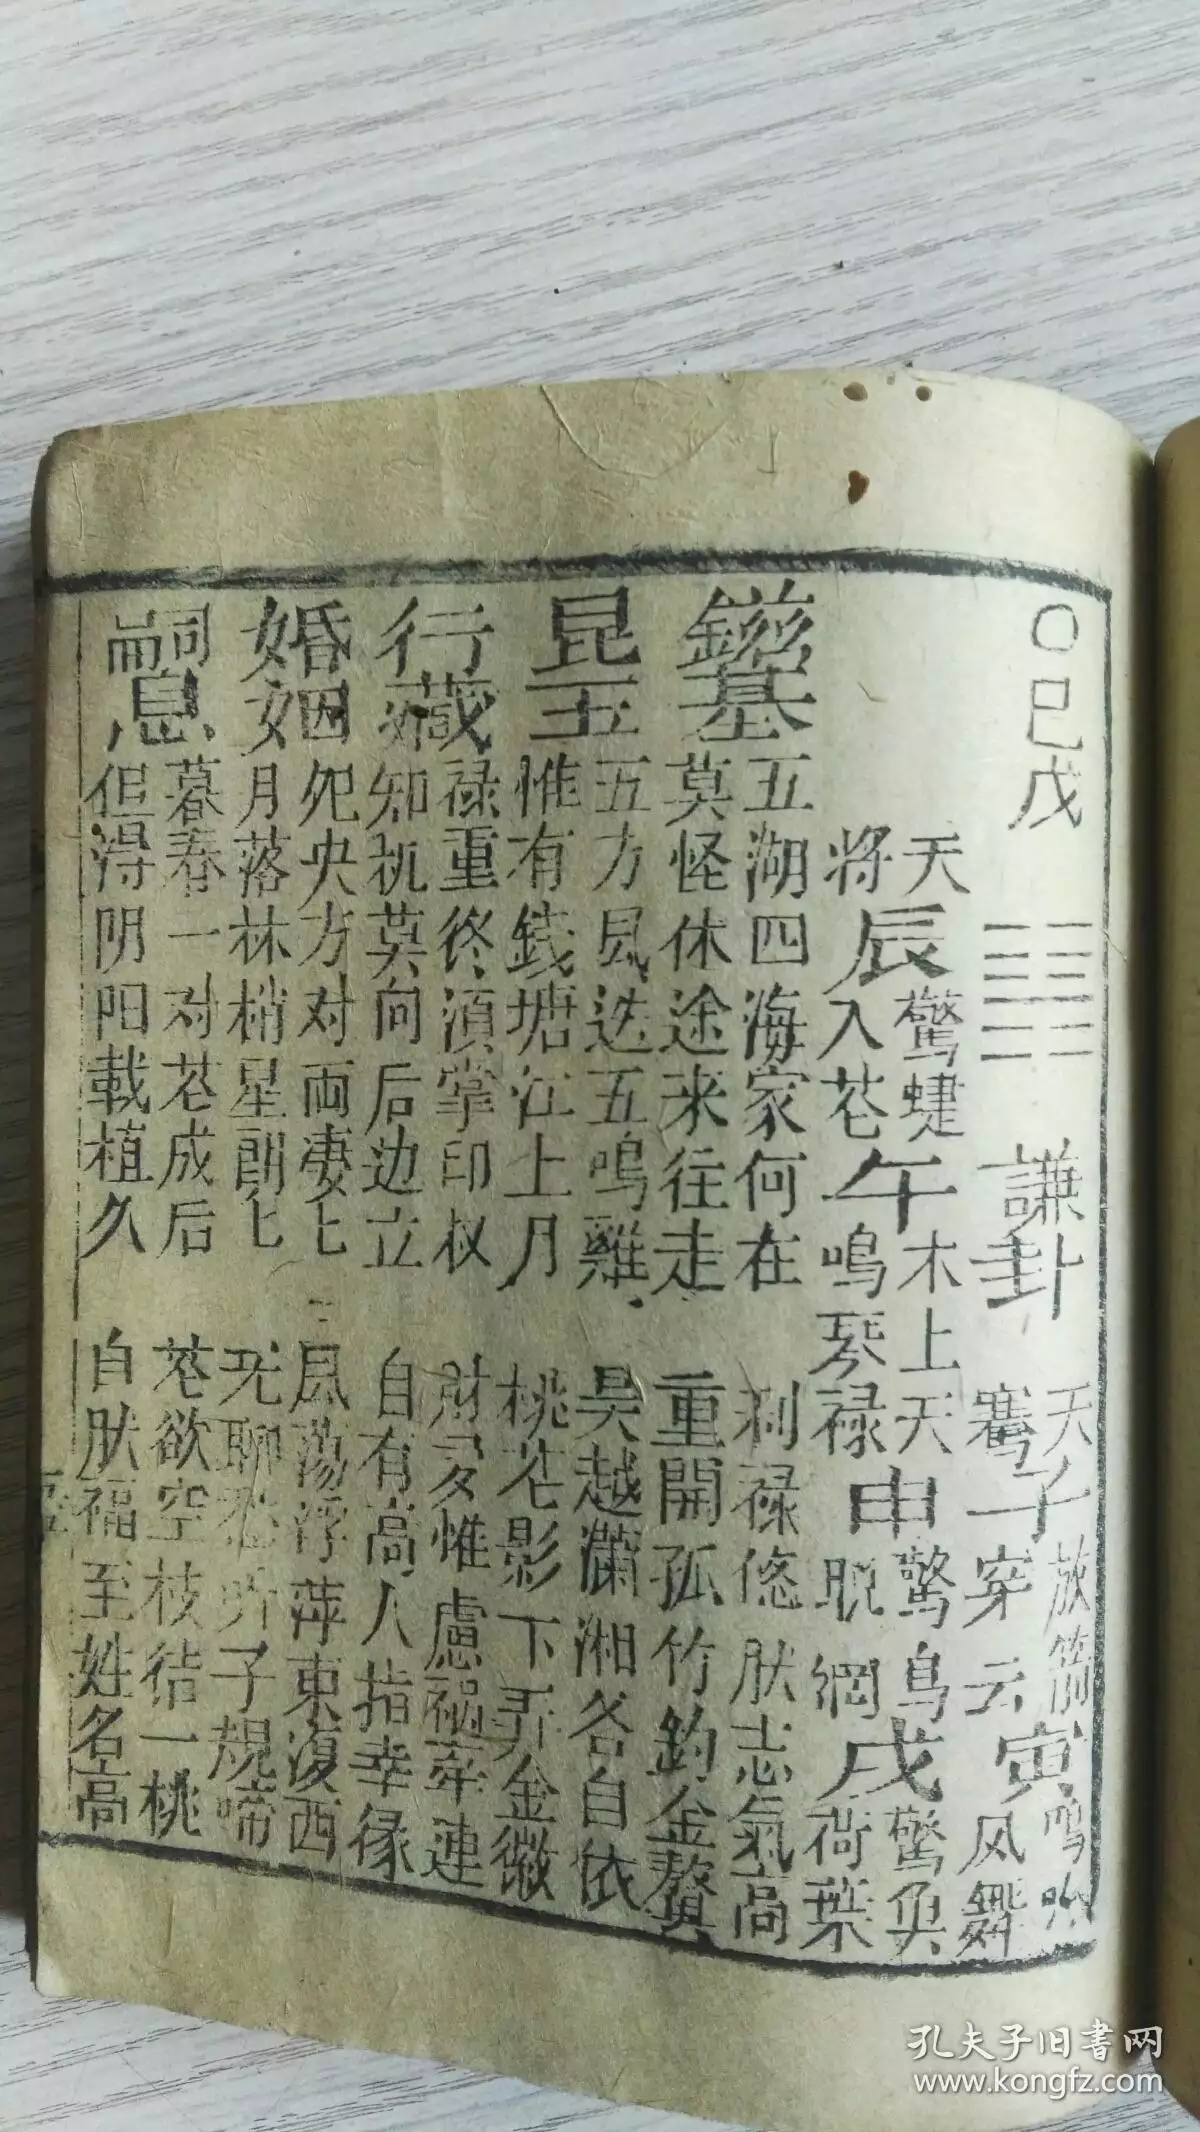 〇巳戊
謙卦
天騫子放箭穿云寅鳴 风舞
天將辰驚蜨入花午木上鳴琴
天禄申驚鳥脱網戌驚魚荷葉
鎡基
五湖四海家何在 利禄悠肰志氣高
莫怪休途来往走 重開孤竹釣金鰲
昆玉
五方凨送五鳴雞 吴越瀟湘各自依
惟有錢塘江上月 桃花影下弄金徽
行藏
禄重終湏掌印权 財多惟慮禍牽連
知机莫向后边立 自有高人指幸缘
婚姻
央方对両凄匕 凨蕩浮萍東復西
月落林梢星朗匕 无聊 听子規啼
嗣息
暮春一对花成后 花欲空枝结一桃
但得阴阳載植久 自肰福至姓名高
孔夫子旧書网
www.kongfz.com